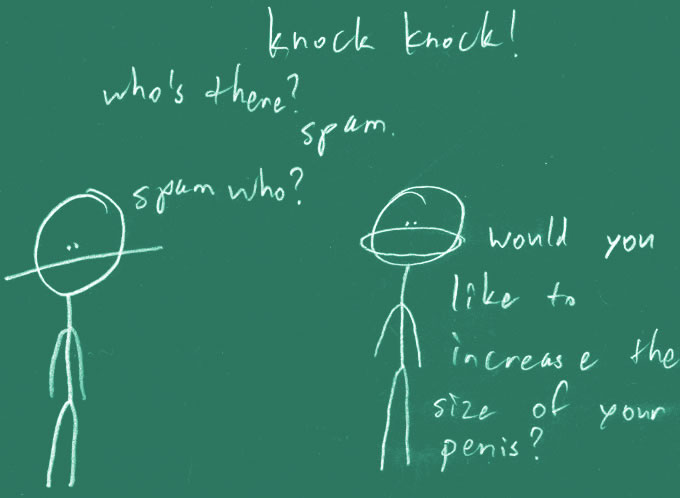 knock knock!
who's there?
spam.
spam who?
would you
like to
increase the
size of your
penis?